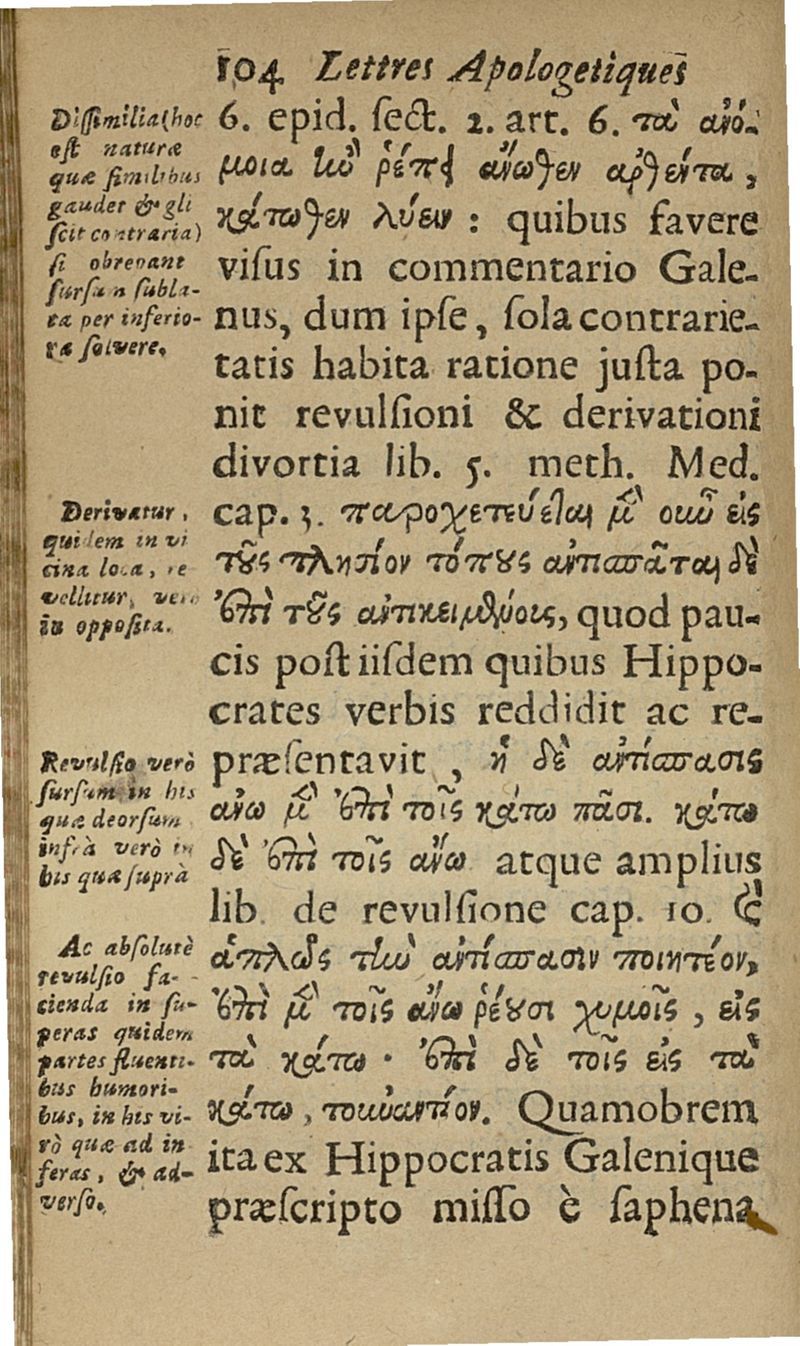 104 Lettres Apologetiques
Dissimilia (hoc
est naturæ
quæ similibus
gaudet & gli
scit contraria)
si obrepant
sursum subla-
ta per inferio-
ra solvere.
Derivatur,
quidem in vi
cina loca, re
vellitur, vero
in opposita.
Revulsio verò
sursum in his
quæ deorsum
infrà verò in
his quæ suprà
Ac absolutè
revulsio fa-
cienda in su-
peras quidem
partes fluenti-
bus humori-
bus, in his ve-
rò quæ ad in
feras, & ad-
verso.
6. epid. sect. 2. art. 6. τὰ ἀνό-
μοια ἢν ῥέπῃ ἄνωθεν ἀρθέντα,
κάτωθεν λύειν : quibus favere
visus in commentario Gale-
nus, dum ipse, sola contrarie-
tatis habita ratione justa po-
nit revulsioni & derivationi
divortia lib. 5. meth. Med.
cap. 3. παροχετεύεται μὲν οὖν εἰς
τοὺς πλησίον τόπους ἀντισπᾶται δὲ
ἐπὶ τοὺς ἀντικειμένους, quod pau-
cis post iisdem quibus Hippo-
crates verbis reddidit ac re-
præsentavit, ἡ δὲ ἀντίσπασις
ἄνω μὲν ἐπὶ τοῖς κάτω πᾶσι. κάτω
δὲ ἐπὶ τοῖς ἄνω atque amplius
lib. de revulsione cap. 10. καὶ
ἁπλῶς τὴν ἀντίσπασιν ποιητέον,
ἐπὶ μὲν τοῖς ἄνω ῥέουσι χυμοῖς, εἰς
τὰ κάτω · ἐπὶ δὲ τοῖς εἰς τὰ
κάτω, τοὐναντίον. Quamobrem
ita ex Hippocratis Galenique
præscripto misso è saphena